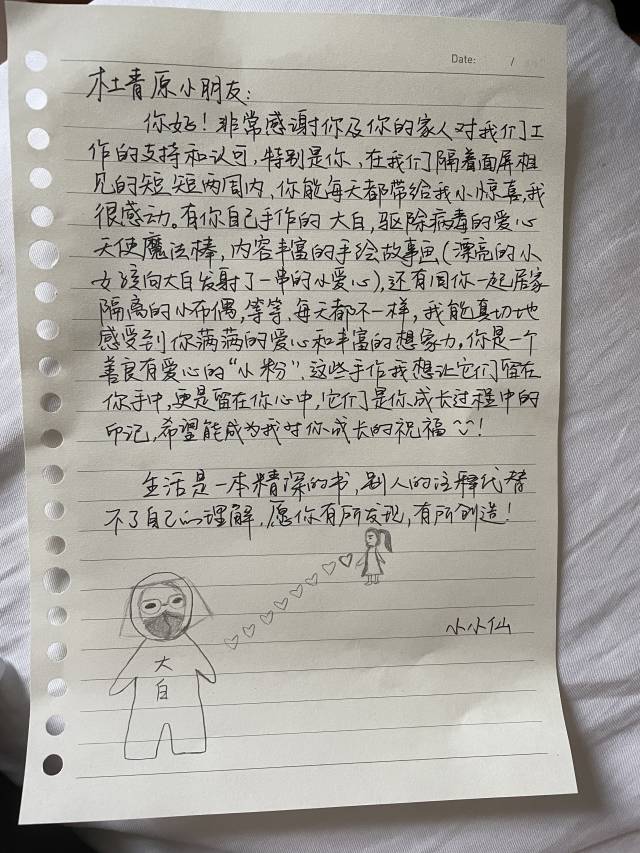 Date: /
杜青原小朋友:
你好！非常感谢你及你的家人对我们工
作的支持和认可,特别是你,在我们隔着面屏相
见的短短两周内,你能每天都带给我小惊喜,我
很感动。有你自己手作的大白,驱除病毒的爱心
天使魔法棒,内容丰富的手绘故事画(漂亮的小
女孩向大白发射了一串的小爱心),还有同你一起居家
隔离的小布偶,等等.每天都不一样,我能真切地
感受到你满满的爱心和丰富的想象力,你是一个
善良有爱心的“小粉”.这些手作我想让它们留在
你手中,更是留在你心中,它们是你成长过程中的
印记,希望能成为我对你成长的祝福!
生活是一本精深的书,别人的注释代替
不了自己的理解.愿你有所发现,有所创造!
小小仙
大
白